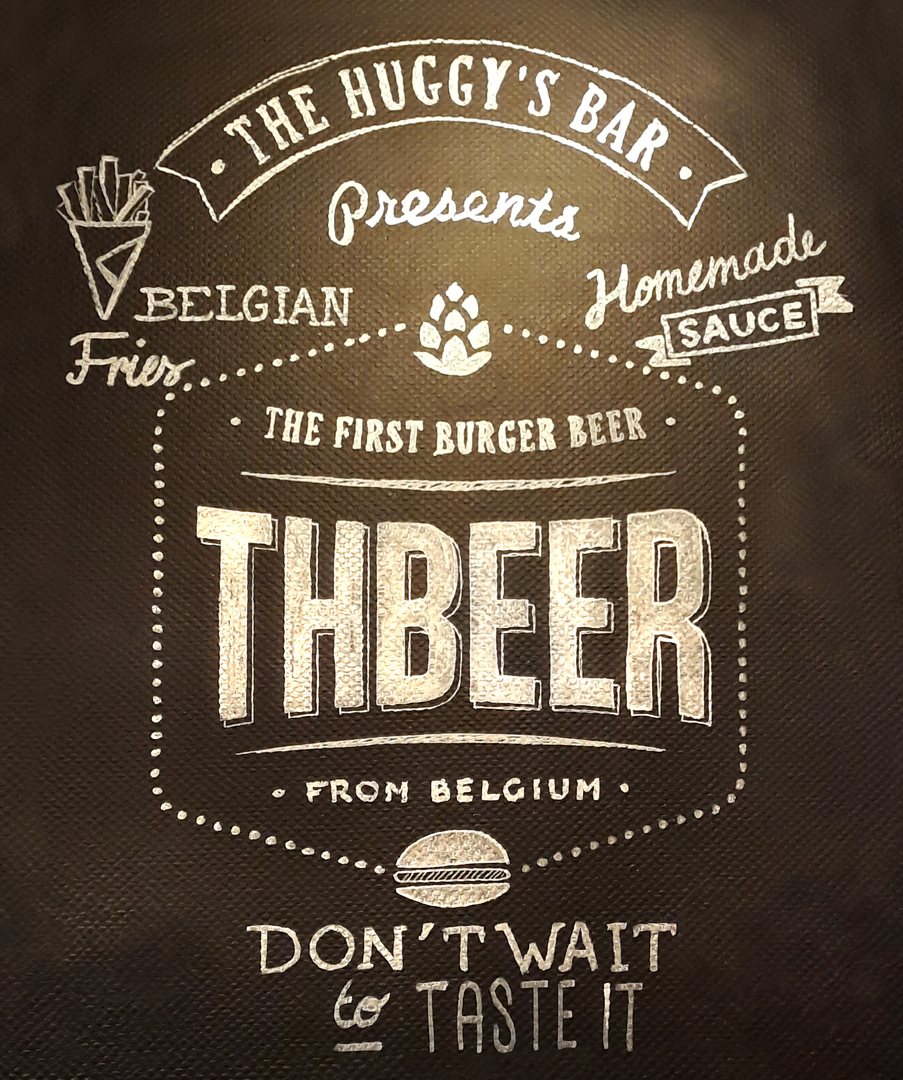 • THE HUGGY'S BAR •
Presents
BELGIAN
Fries
Homemade
SAUCE
• THE FIRST BURGER BEER •
THBEER
• FROM BELGIUM •
DON'T WAIT
to TASTE IT